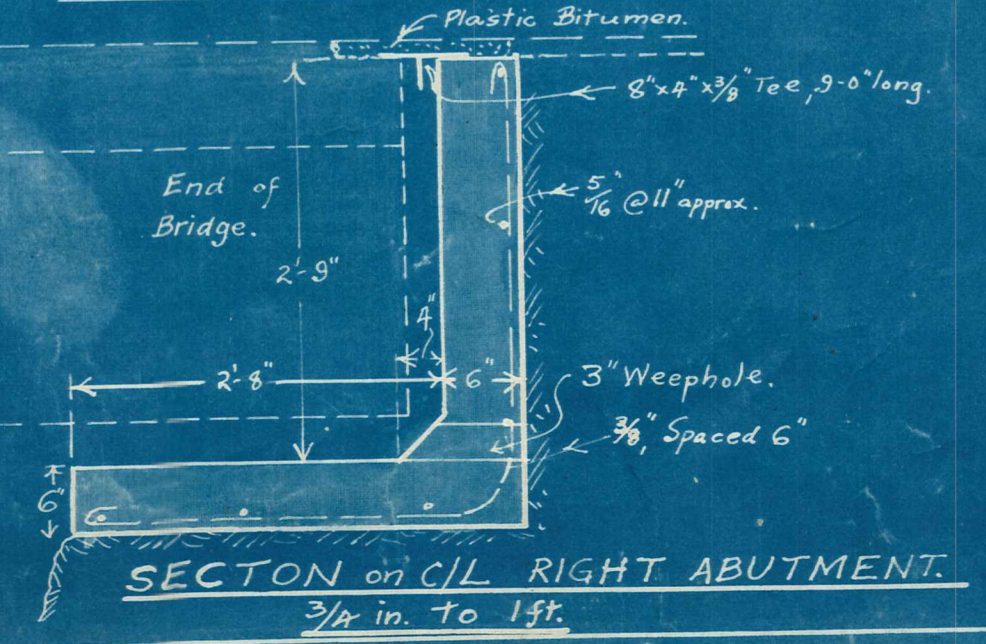 Plastic Bitumen.
8"x4"x3/8" Tee, 9-0" long.
End of
Bridge.
5/16" @ 11" approx.
2'-9"
4"
2'-8"
6"
3" Weephole.
3/8" Spaced 6"
6"
SECTON on C/L RIGHT ABUTMENT.
3/4 in. to 1ft.